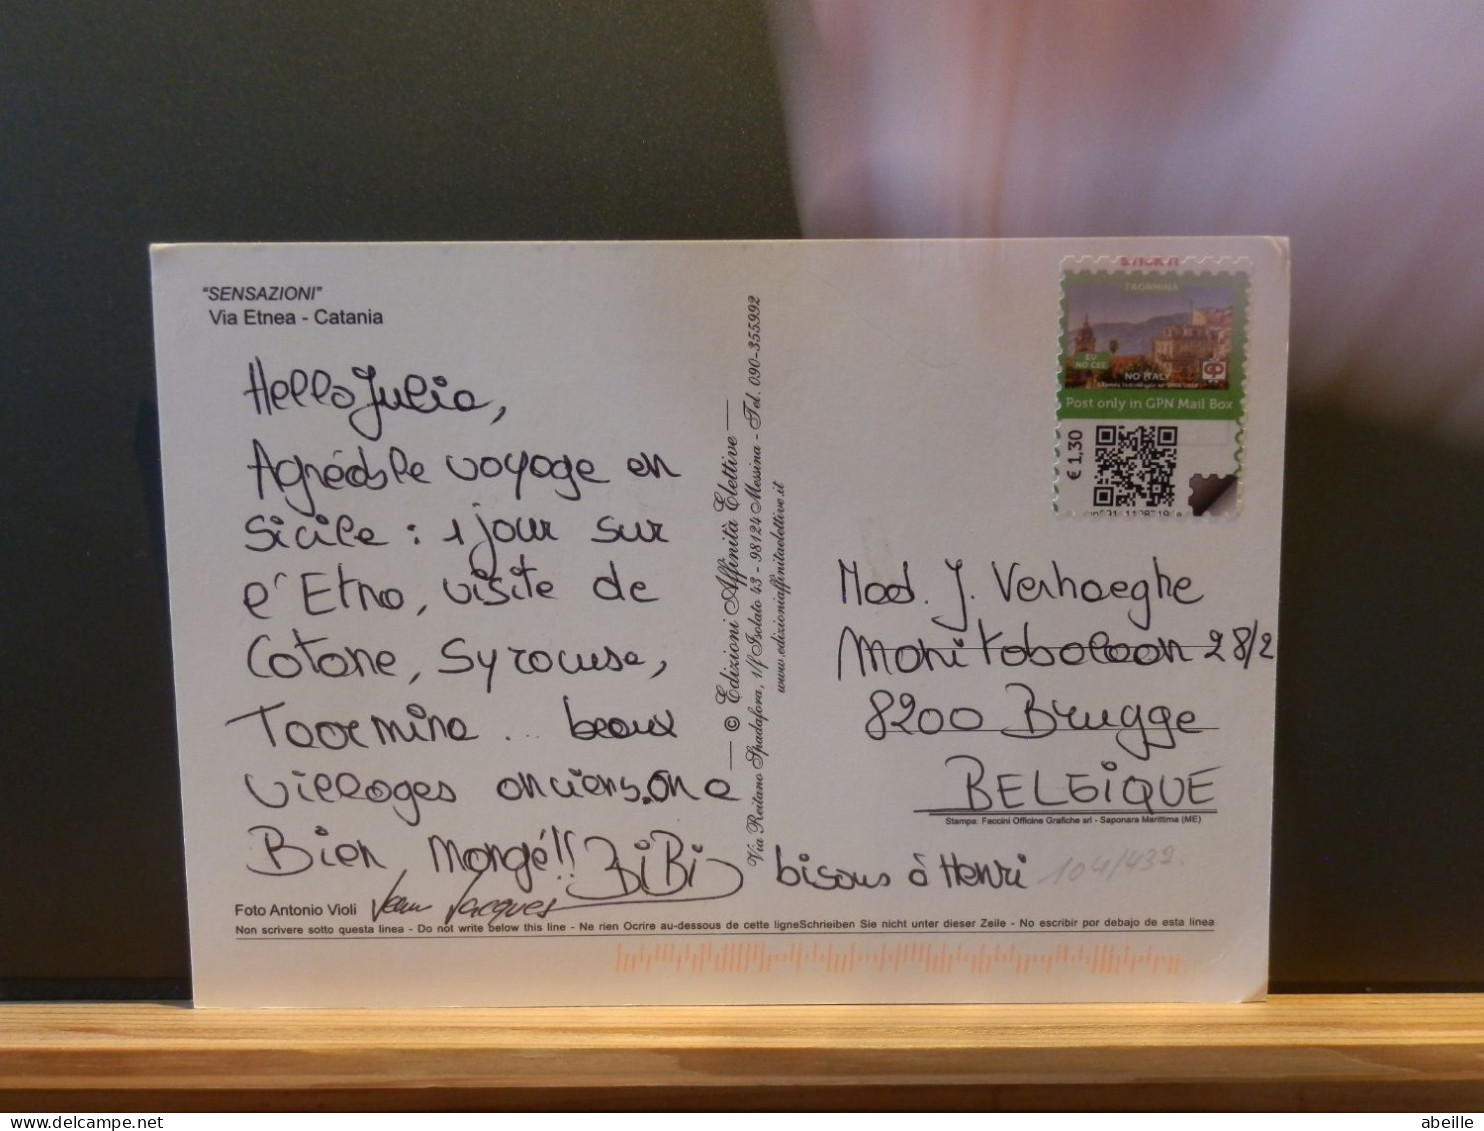 "SENSAZIONI"
Via Etnea - Catania
Hello Julia,
Agréable voyage en
Sicile : 1 jour sur
l'Etna, visite de
Catane, Syracuse,
Taormina ... beaux
villages anciens. On a
Bien mangé !! BiBi
Jean Jacques
bisous à Henri
Foto Antonio Violi
© Edizioni Affinità Elettive
Via Reitano Spadafora, 1/f Isolato 43 - 98124 Messina - Tel. 090-355992
www.edizioniaffinitaelettive.it
TAORMINA
EU
NO CEE
NO ITALY
Post only in GPN Mail Box
€ 1,30
Mad. J. Verhaeghe
Manitobalaan 28/2
8200 Brugge
BELGIQUE
Stampa: Faccini Officine Grafiche srl - Saponara Marittima (ME)
104/439.
Non scrivere sotto questa linea - Do not write below this line - Ne rien Ocrire au-dessous de cette ligneSchrieiben Sie nicht unter dieser Zeile - No escribir por debajo de esta linea
abeille